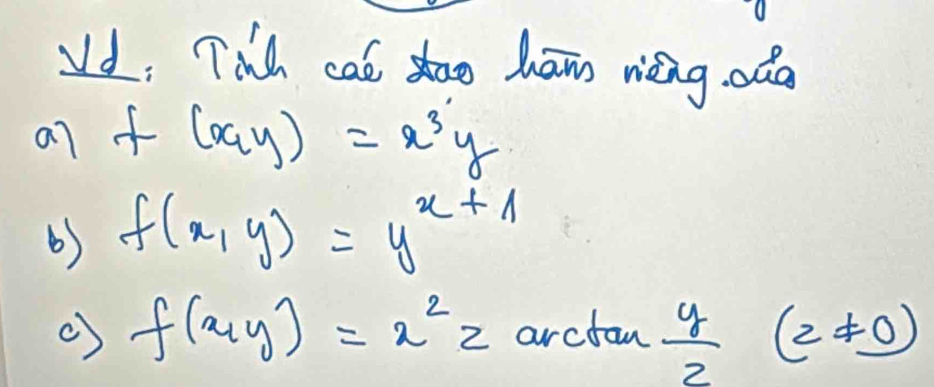 Vd: Tính các đạo hàm riêng của
a) f(x,y) = x³y
b) f(x,y) = y^{x+1}
c) f(x,y) = x² z arctan y/z (z ≠ 0)